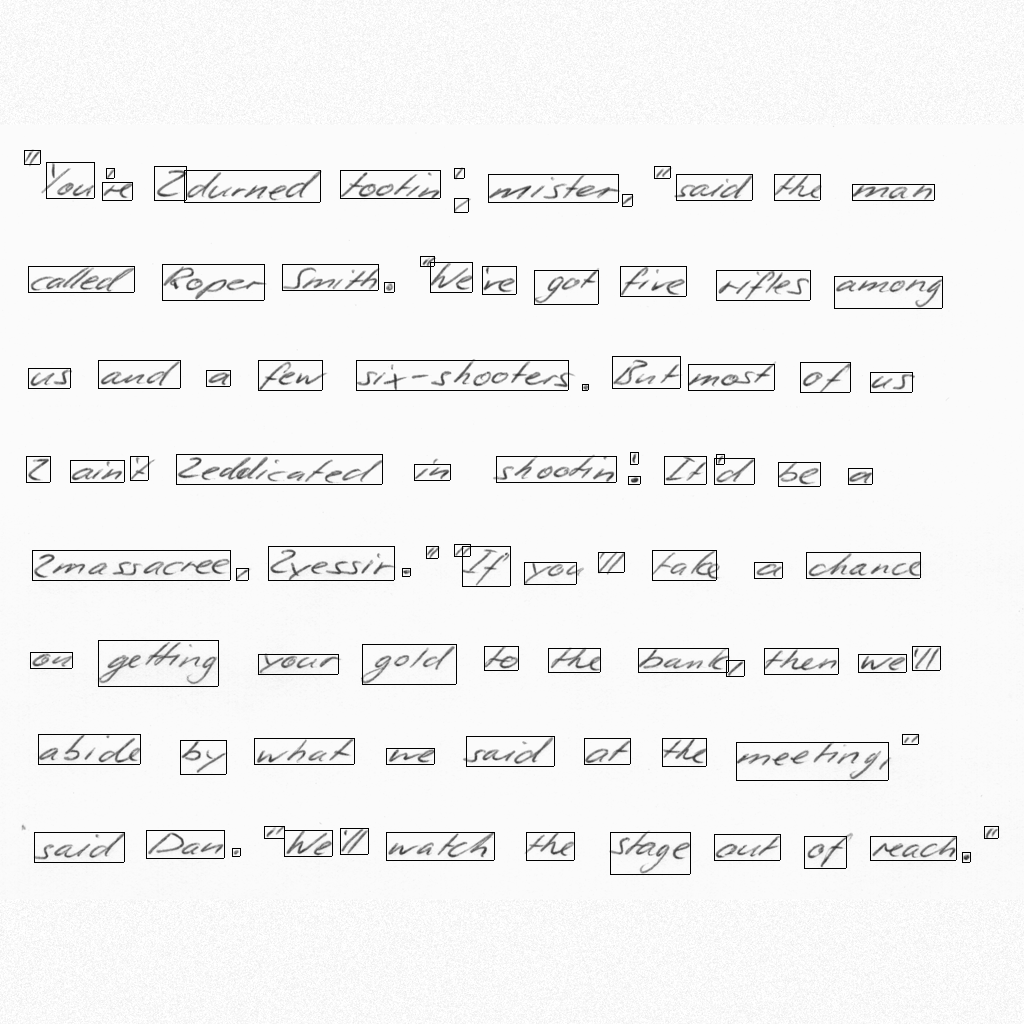 "You're 2durned tootin', mister," said the man
called Roper Smith. "We're got five rifles among
us and a few six-shooters. But most of us
2 ain't 2eddicated in shootin'. It'd be a
2massacree, 2yessir." "If you'll take a chance
on getting your gold to the bank, then we'll
abide by what we said at the meeting,"
said Dan. "We'll watch the stage out of reach."